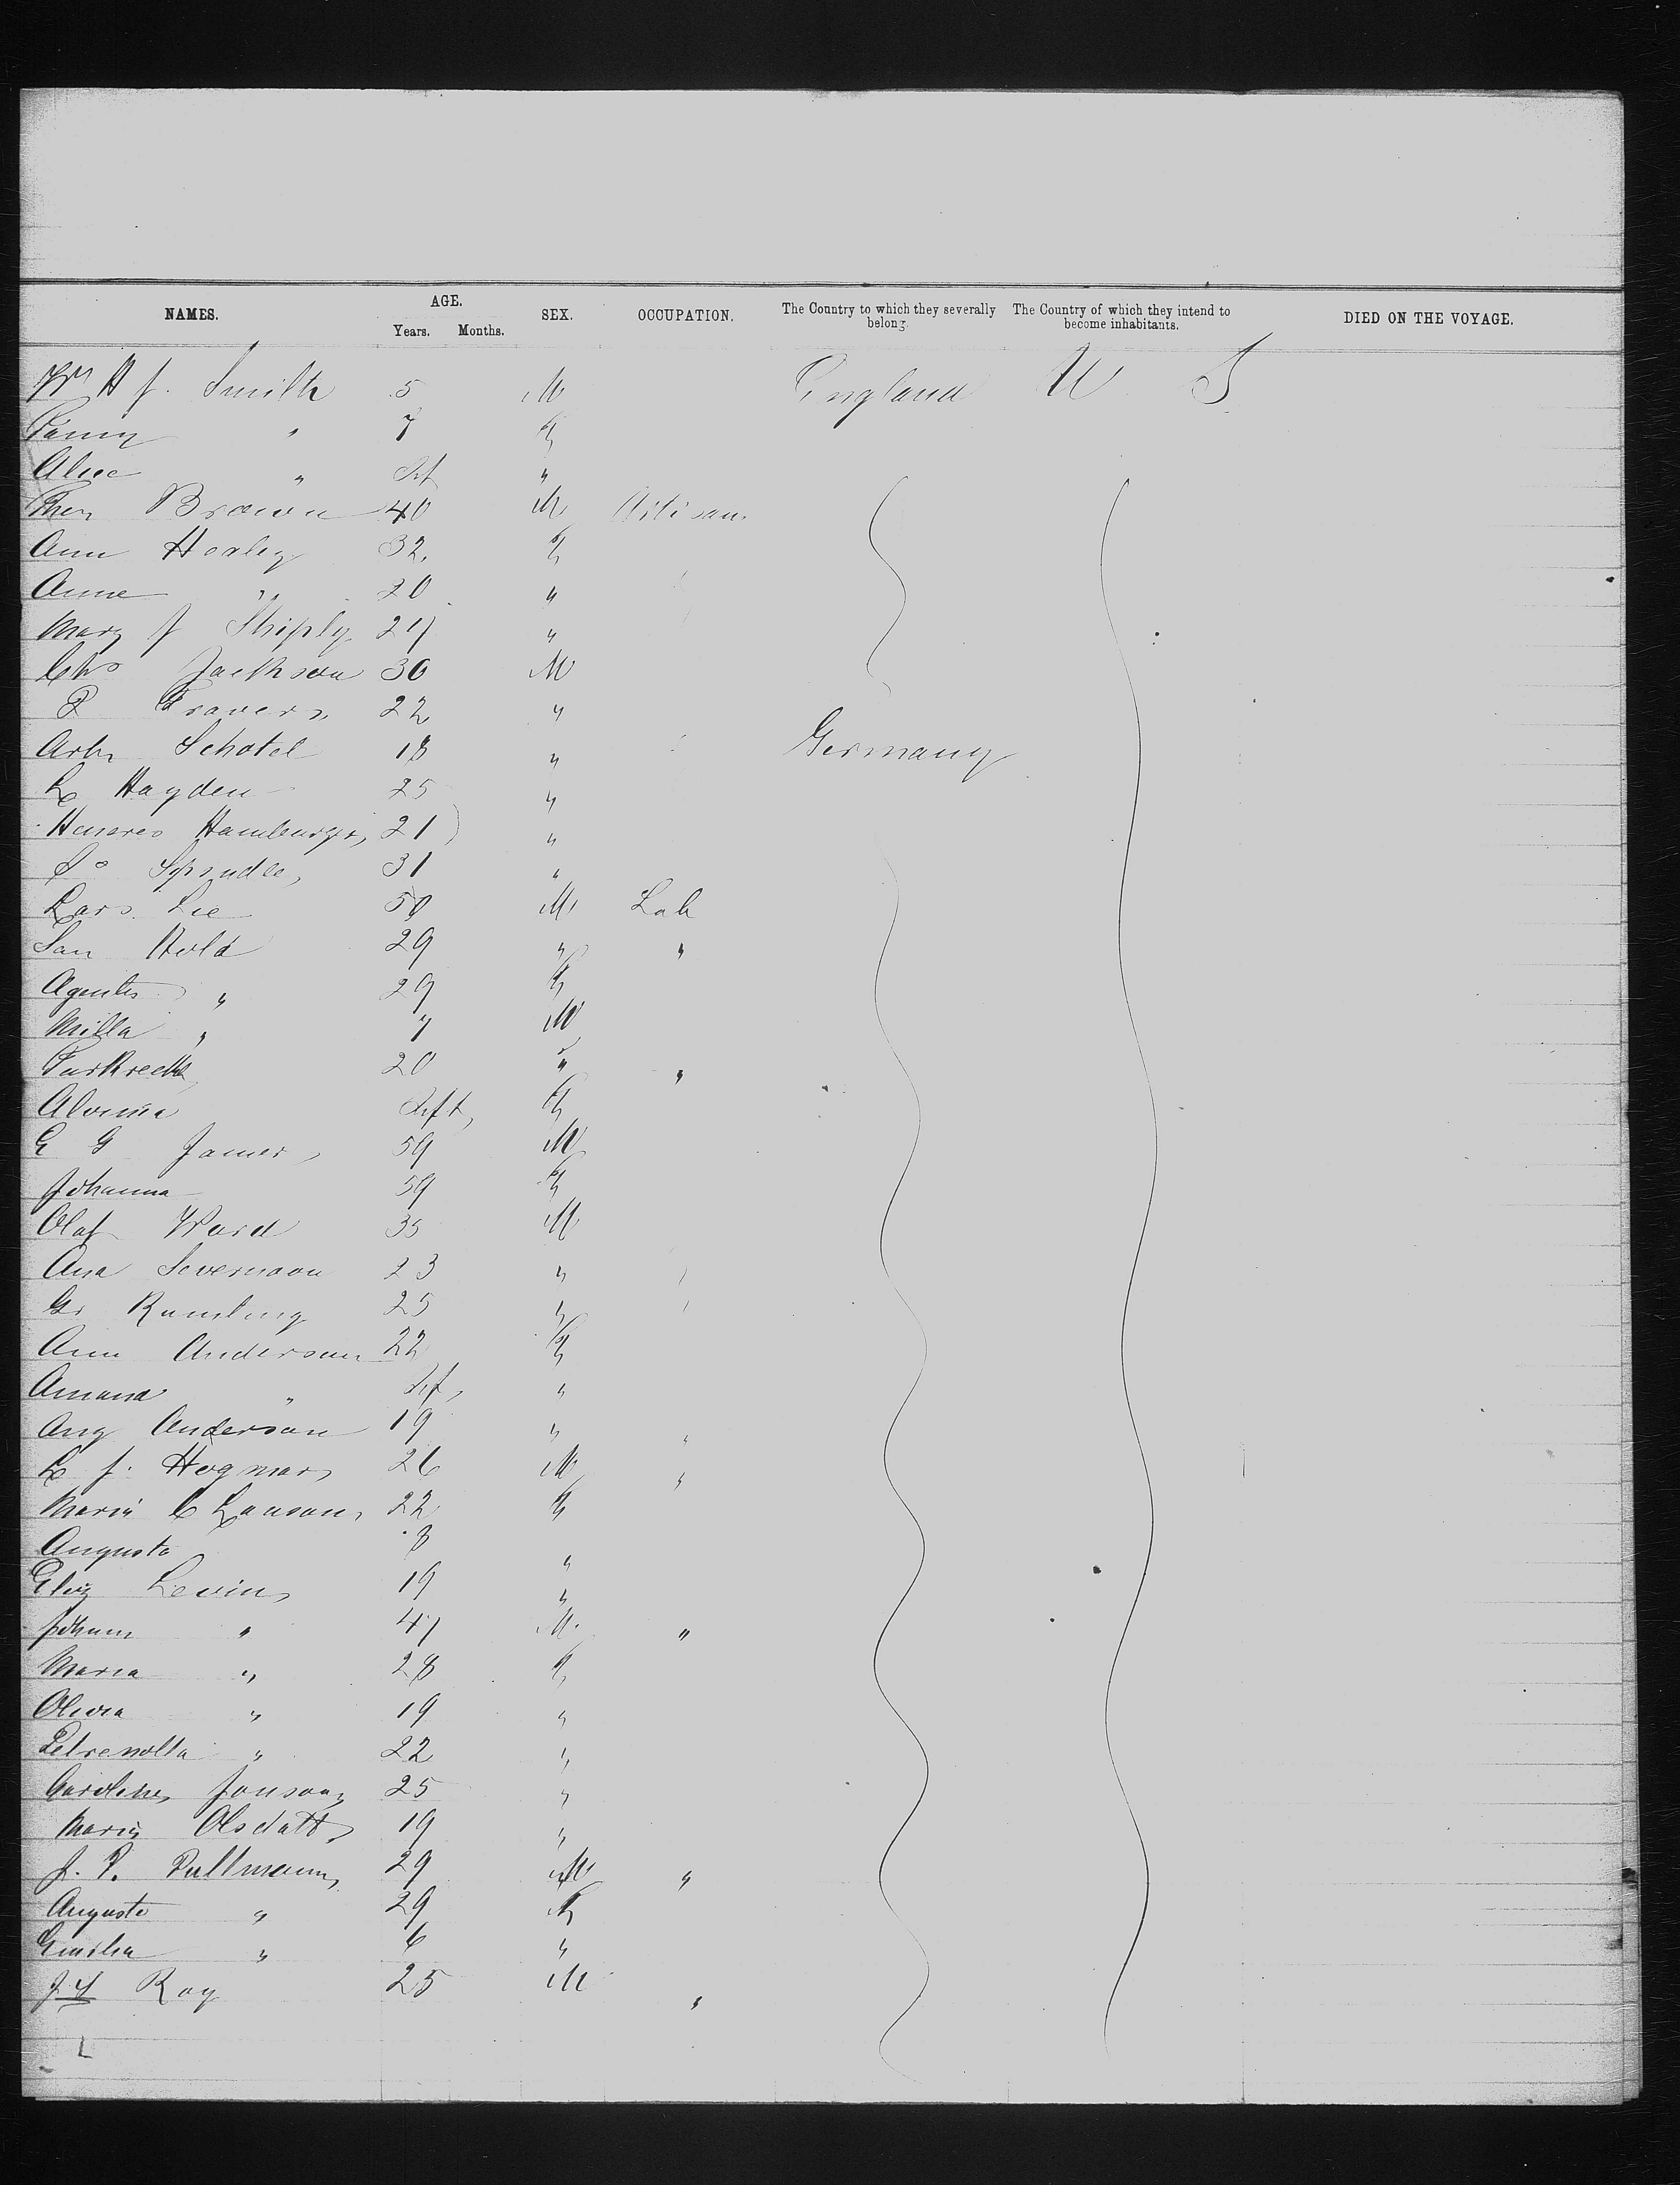 NAMES. AGE. Years. Months. SEX. OCCUPATION. The Country to which they severally belong. The Country of which they intend to become inhabitants. DIED ON THE VOYAGE.
Wm H J. Smith 5 M England U S
Fanny " 7 F
Alice " Inf "
Brown 40 M Artisan
Ann Healey 32 F
Anne " 20 "
Mary J Shiply 21 "
Chs Jackson 30 M
P Travers 22 "
Arth Schotel 18 " Germany
L Hayden 25 "
Hamburger, 21 "
31 "
Lars Lie 50 M Lab
Hold 29 " "
" 29 F
Milla " 7 M
20 " "
Alvina Inft F
E G James 59 M
Johanna 59 F
Olaf Ward 35 M
Ana 23 "
25 "
Ann Anderson 22 F
Amand " Inf, "
Aug Anderson 19 " "
L J. Hogman 26 M "
Maria C Lauson 22 F
Augusta 8 "
Eliz Levin 19 "
Johann " 47 M "
Maria " 28 F
Olivia " 19 "
" 22 "
Caroline Jonson 25 "
Maria Olsdatt 19 "
J. P. Pullmann 29 M "
Augusta " 29 F
Emilia " 6 "
Ray 25 M "
L